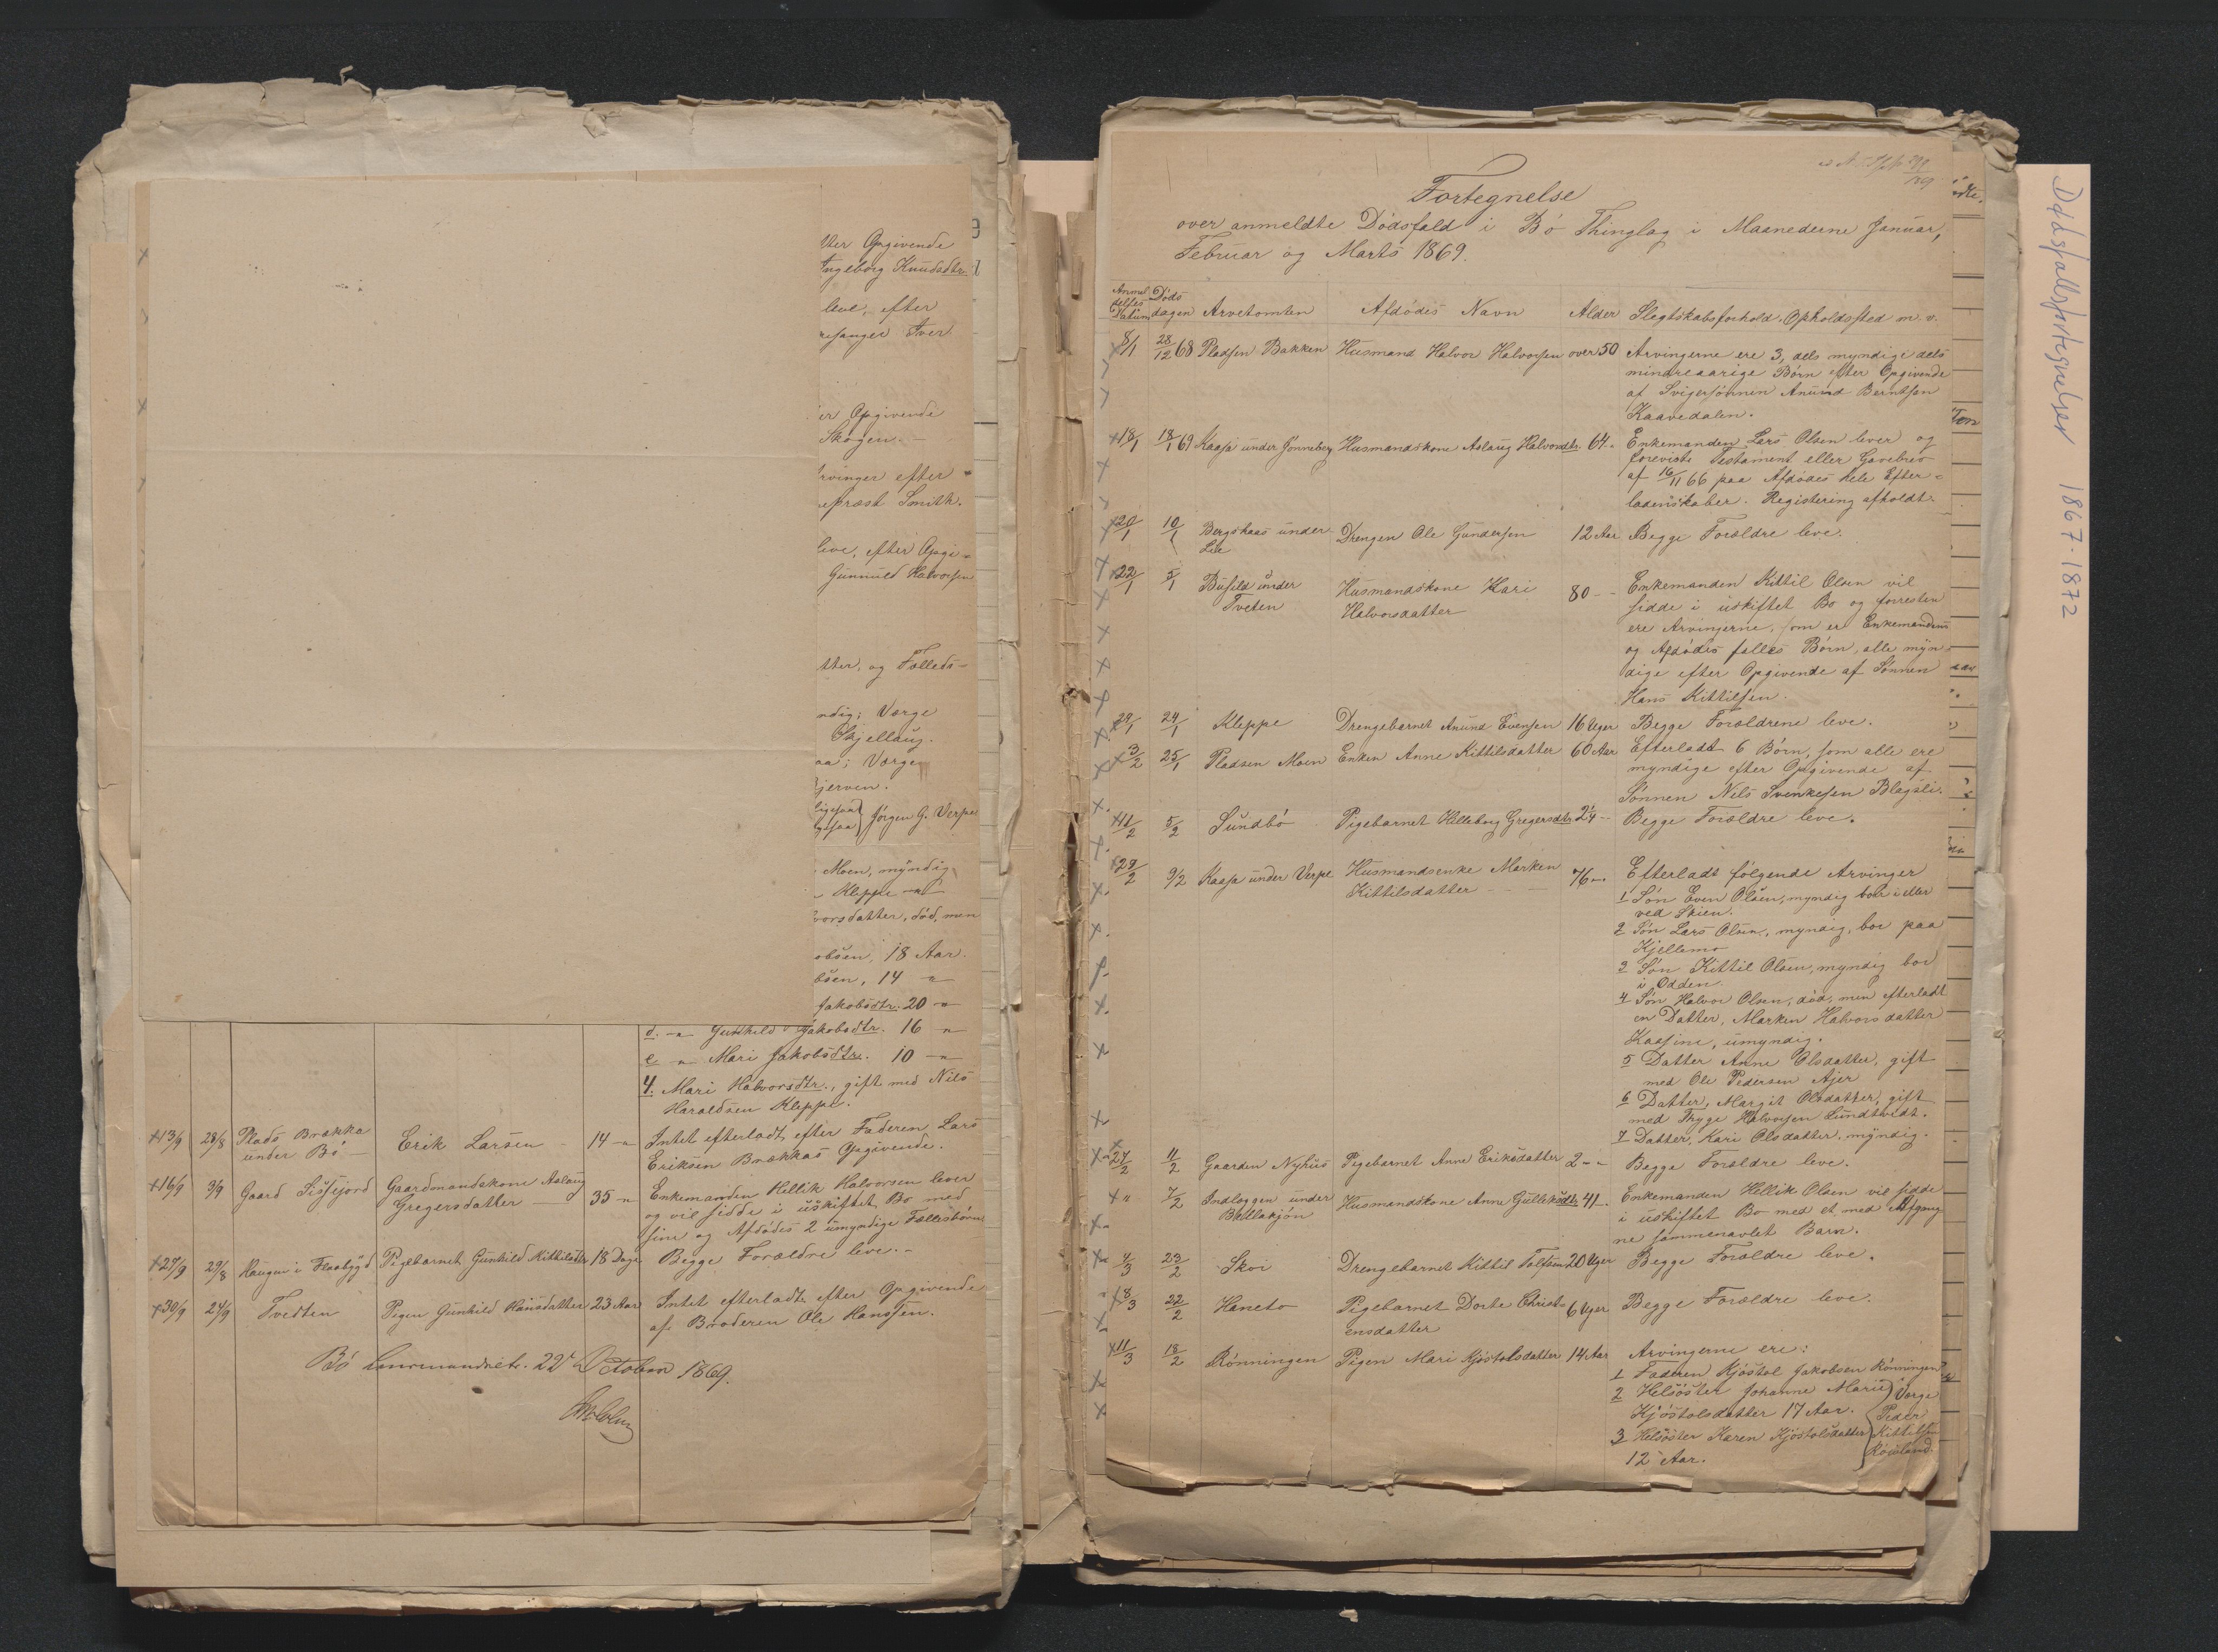 ter Opgivende
Ingeborg Knudsdtr.
leve, efter
Iver
er Opgivende
Skogen. —
Arvinger efter
præst Smith.
leve, efter Opgi-
Gunnuld Halvorsen
tter, og Fælleds-
ndig; Værge
Skjellaug.
aa; Værge
Bjerven.
Jørgen G. Verpe
Moen, myndig
Kleppe
vorsdatter, død, men
obsen, 18 Aar.
bsen, 14 "
Jakobsdtr. 20 "
d. " Gunhild Jakobsdtr. 16 "
e " Mari Jakobsdtr. 10 "
4. Mari Halvorsdtr., gift med Nils
Haraldsen Kleppe.
+13/9 28/8 Plads Brækka under Bø — Erik Larsen - 14 " Intet efterladt efter Faderen Lars
Eriksen Brækkas Opgivende.
+16/9 3/9 Gaard Sisjejord Gaardmandskone Aslaug Gregersdatter — 35 " Enkemanden Kittil Halvorsen lever
og vil sidde i uskiftet Bo med
sine og Afdødes 2 umyndige Fællesbørn
+27/9 29/8 Haugen i Flaabygd Pigebarnet Gunhild Kittilsdtr 18 Dage Begge Forældre leve. -
+30/9 24/9 Tvedten Pigen Gunhild Hansdatter 23 Aar Intet efterladt efter Opgivende
af Broderen Ole Hanssen.
Bø Lensmandsetr. 22 October 1869.
Dødsfallsfortegnelser 1867-1872
Fortegnelse
over anmeldte Dødsfald i Bø Thinglag i Maanederne Januar,
Februar og Marts 1869.
Anmeldelses Datum Døds dagen Arvetomten Afdødes Navn Alder Slegtskabsforhold. Opholdssted m. v.
8/1 28/12 68 Pladsen Bakken Husmand Halvor Halvorsen over 50 Arvingerne ere 3, dels myndige dels
mindreaarige Børn efter Opgivende
af Svigersønnen Anund Berntsen
Kaavedalen.
+18/1 18/1 69 Kaasa under Jønneberg Husmandskone Aslaug Halvorsdtr. 64 - Enkemanden Lars Olsen lever og
foreviste Testament eller Gavebrev
af 16/11 66 paa Afdødes hele Efter-
ladenskaber. Registering afholdt.
+20/1 10/1 Bergskaas under Lie Drengen Ole Gundersen 12 Aar Begge Forældre leve.
+22/1 5/1 Busild under Tveten Husmandskone Kari Halvorsdatter 80 - - Enkemanden Kittil Olsen vil
sidde i uskiftet Bo og forresten
ere Arvingerne, som er Enkemandens
og Afdødes fælles Børn, alle myn-
dige efter Opgivende af Sønnen
Hans Kittilsen.
29/1 24/1 Kleppe Drengebarnet Anund Evensen 16 Uger Begge Forældrene leve.
+3/2 25/1 Pladsen Moen Enken Anne Kittilsdatter 60 Aar Efterladt 6 Børn, som alle ere
myndige efter Opgivende af
Sønnen Nils Svenkesen Blegsli.
+11/2 5/2 Sundbø Pigebarnet Hilleborg Gregersdtr 2¼ - Begge Forældre leve.
+29/2 9/2 Kaasa under Verpe Husmandsenke Marken Kittilsdatter - - 76 - Efterladt følgende Arvinger
1 Søn Even Olsen, myndig boer i eller
ved Skien.
2 Søn Lars Olsen, myndig, boe paa
Kjellemo
3 Søn Kittil Olsen, myndig boe
i Odden.
4 Søn Halvor Olsen, død, men efterladt
en Datter, Marken Halvorsdatter
Kaasene, umyndig.
5 Datter Anne Olsdatter, gift
med Ole Pedersen Ajer
6 Datter, Margit Olsdatter, gift
med Trygge Halvorsen Lundtvedt.
7 Datter, Kari Olsdatter, myndig.
+27/2 11/2 Gaarden Nyhus Pigebarnet Anne Eriksdatter 2 - - Begge Forældre leve.
+ " 7/2 Indlæggen under Bullakjøn Husmandskone Anne Gulleksdtr 41 - Enkemanden Hellik Olsen vil sidde
i uskiftet Bo med et med Afgang
ne sammenavlet Barn.
4/3 23/2 Skoe Drengebarnet Kittil Tolfsen 20 Uger Begge Forældre leve.
+8/3 22/2 Haneto Pigebarnet Dorte Christensdatter 6 Uger Begge Forældre leve.
+11/3 18/2 Rønningen Pigen Mari Kjøstolsdatter 14 Aar Arvingerne ere:
1 Faderen Kjøstol Jakobsen Rønningen
2 Helsøster Johanne Marie
Kjøstolsdatter 17 Aar.
3 Helsøster Karen Kjøstolsdatter
12 Aar.
Værge
Peder
Kittilsen
Roisland.